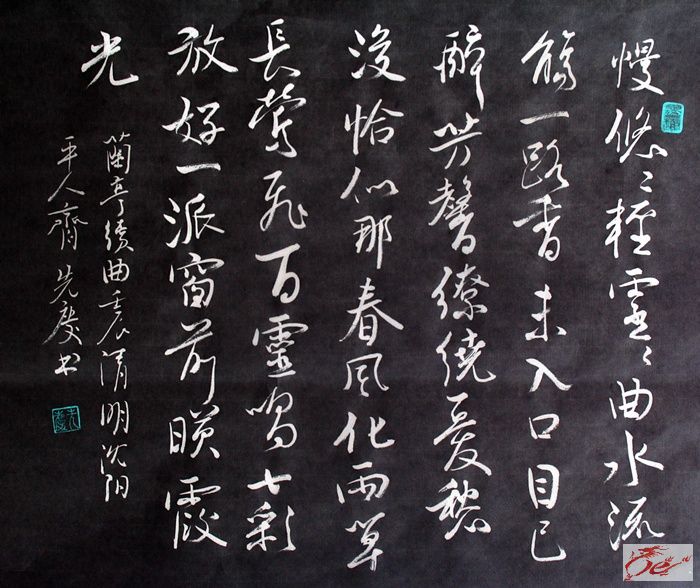 慢悠〻輕靈〻曲水流
觴一路香未入口目已
醉芳馨繚繞憂愁
沒恰似那春風化雨草
長鶯飛百靈鳴七彩
放好一派窗前映霞
光
蘭亭續曲壬辰清明沈阳
平人齋先慶书